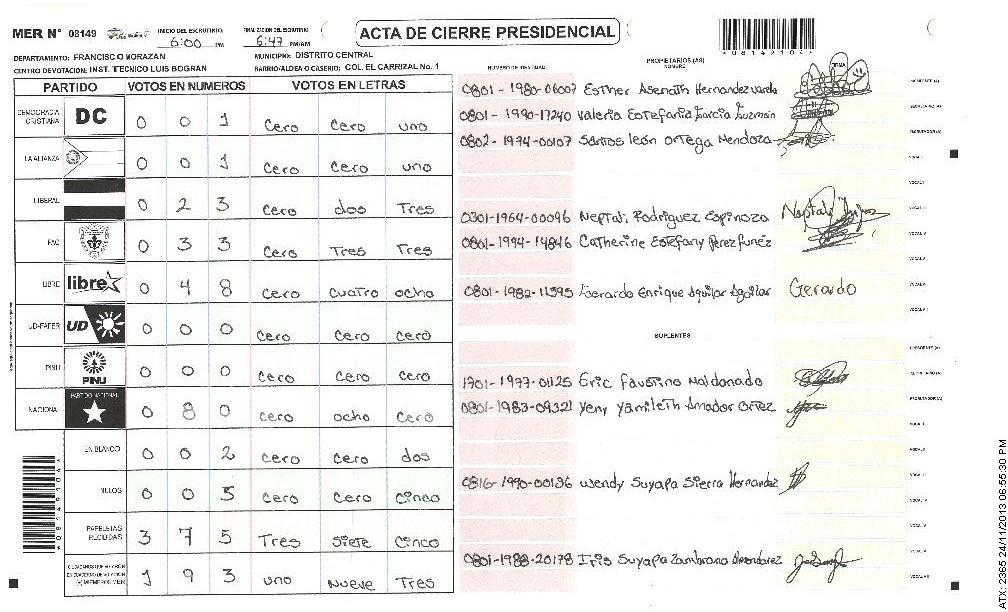 MER N° 08149 INICIO DEL ESCRUTINIO 6:00 PM FINALIZACION DEL ESCRUTINIO 6:47 PM/AM
ACTA DE CIERRE PRESIDENCIAL
*08149104*
DEPARTAMENTO: FRANCISCO MORAZAN MUNICIPIO: DISTRITO CENTRAL
CENTRO DE VOTACION: INST. TECNICO LUIS BOGRAN BARRIO/ALDEA O CASERIO: COL. EL CARRIZAL No. 1
PARTIDO VOTOS EN NUMEROS VOTOS EN LETRAS
DEMOCRACIA CRISTIANA DC 0 0 1 cero cero uno
LA ALIANZA 0 0 1 cero cero uno
LIBERAL 0 2 3 cero dos Tres
PAC 0 3 3 cero Tres Tres
LIBRE libre 0 4 8 cero cuatro ocho
UD-FAPER UD 0 0 0 cero cero cero
PINU PINU 0 0 0 cero cero cero
NACIONAL PARTIDO NACIONAL 0 8 0 cero ocho cero
EN BLANCO 0 0 2 cero cero dos
NULOS 0 0 5 cero cero cinco
PAPELETAS RECIBIDAS 3 7 5 Tres siete cinco
CIUDADANOS QUE VOTARON EN CUADERNO DE VOTACION (+) MIEMBROS MER 1 9 3 uno nueve Tres
*08149104*
NUMERO DE IDENTIDAD PROPIETARIOS (AS) NOMBRE FIRMA
0801-1980-06007 Esther Asenath Hernandez Varela
0801-1990-17240 Valeria Estefania Garcia Guzmán SECRETARIO (A)
0802-1974-00107 Santos león ortega Mendoza ESCRUTADOR (A)
VOCAL I
0301-1964-00096 Neptali Rodriguez Espinoza Neptali
0801-1994-14846 Catherine Estefany Perez Funéz
0801-1982-11595 Gerardo Enrique Aguilar Aguilar Gerardo
SUPLENTES
PRESIDENTE (A)
1701-1977-01125 Eric Faustino Maldonado SECRETARIO (A)
0801-1983-09321 Yeny Yamileth Amador Ortez ESCRUTADOR (A)
0816-1990-00136 Wendy Suyapa Sierra Hernandez
0801-1988-20178 Iris Suyapa Zambrano Almendarez
ATX: 2365 24/11/2013 06:55:30 PM